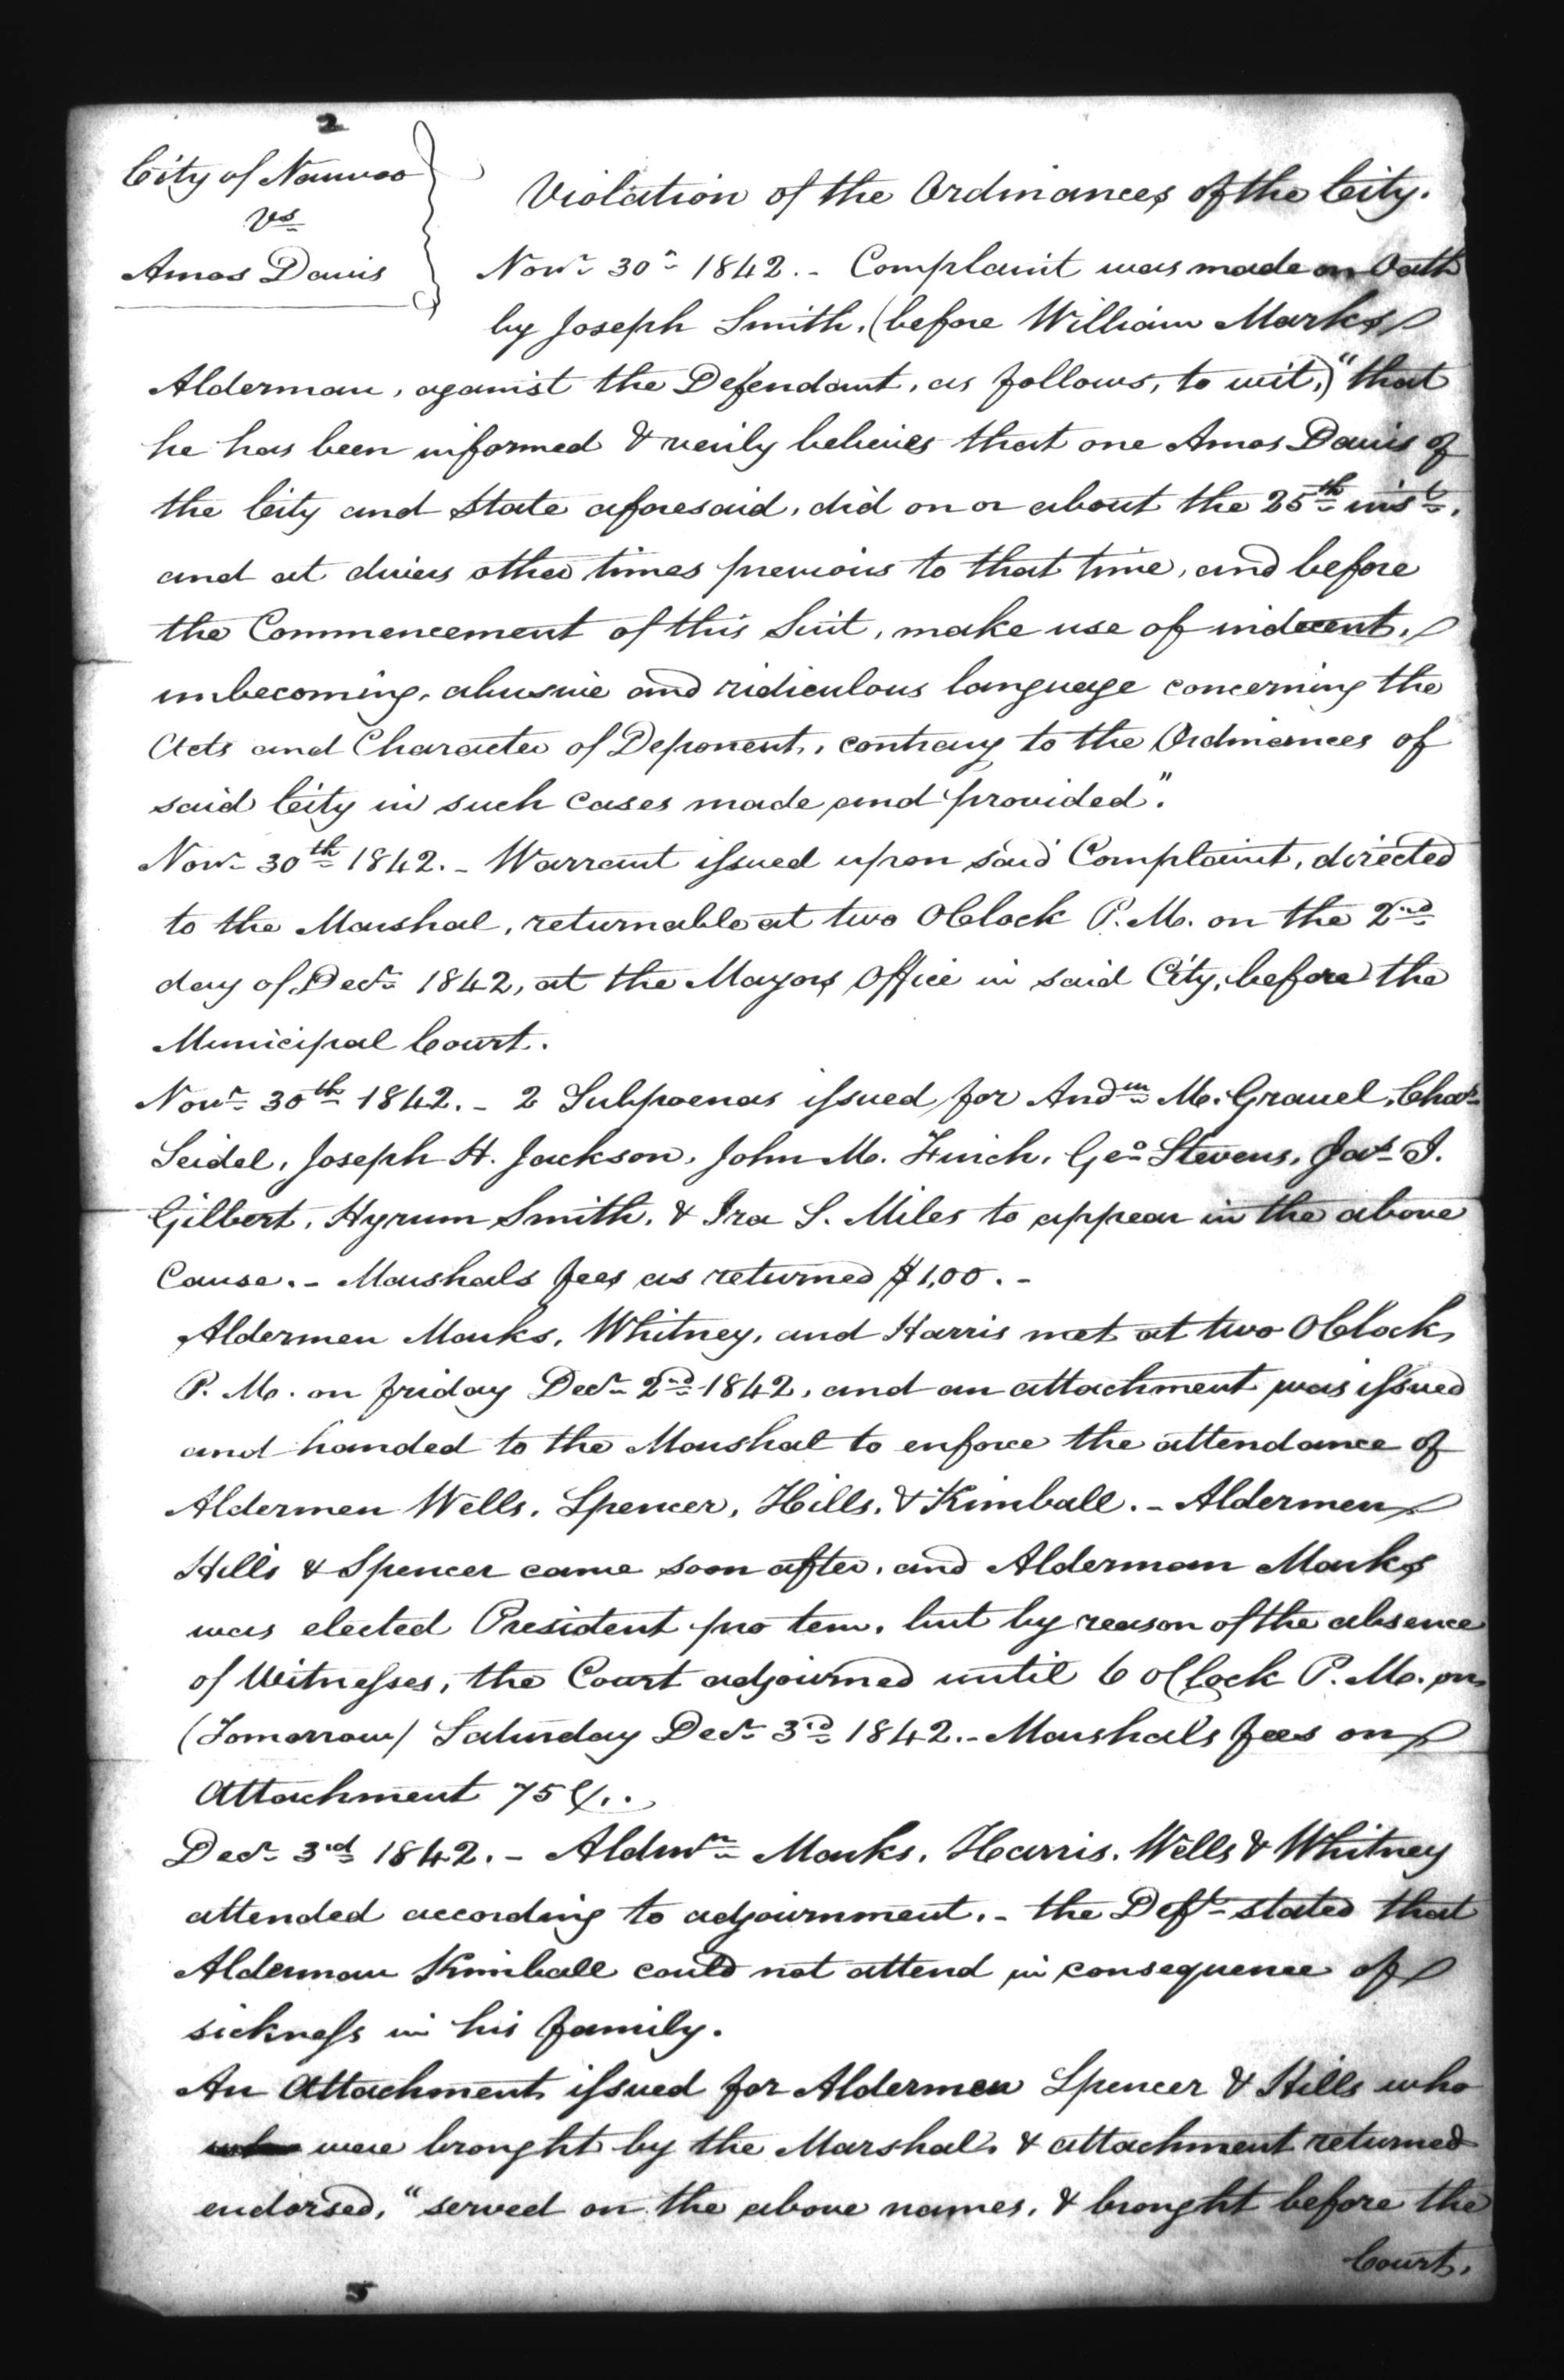 2
City of Nauvoo
vs
Amos Davis
Violation of the Ordinances of the City.
Novr 30th 1842. - Complaint was made on Oath
by Joseph Smith, (before William Marks
Alderman, against the Defendant, as follows, to wit,) "that
he has been informed & verily believes that one Amos Davis of
the City and State aforesaid, did on or about the 25th inst.,
and at divers other times previous to that time, and before
the Commencement of this Suit, make use of indecent,
unbecoming, abusive and ridiculous language concerning the
Acts and Character of Deponent, contrary to the Ordinances of
said City in such cases made and provided".
Novr 30th 1842. - Warrant issued upon said Complaint, directed
to the Marshal, returnable at two OClock P. M. on the 2nd
day of Decr 1842, at the Mayors Office in said City, before the
Municipal Court.
Novr 30th 1842. - 2 Subpoenas issued for Andw M. Gravel, Chas
Seidel, Joseph H. Jackson, John M. Finch, Geo Stevens, Jas J.
Gilbert, Hyrum Smith, & Ira S. Miles to appear in the above
Cause. - Marshals fees as returned $1,00. -
Aldermen Marks, Whitney, and Harris met at two OClock
P. M. on friday Decr 2nd 1842, and an attachment was issued
and handed to the Marshal to enforce the attendance of
Aldermen Wells, Spencer, Hills, & Kimball. - Aldermen
Hills & Spencer came soon after, and Alderman Marks
was elected President pro tem, but by reason of the absence
of Witnesses, the Court adjourned until 6 oClock P. M. on
(Tomorrow) Saturday Decr 3rd 1842. - Marshal's fees on
Attachment 75 c/..
Decr 3rd 1842. - Aldmn Marks, Harris, Wells & Whitney
attended according to adjournment. - the Deft stated that
Alderman Kimball could not attend in consequence of
sickness in his family.
An Attachment issued for Aldermen Spencer & Hills who
who were brought by the Marshal, & attachment returned
endorsed, "served on the above names, & brought before the
Court,
5